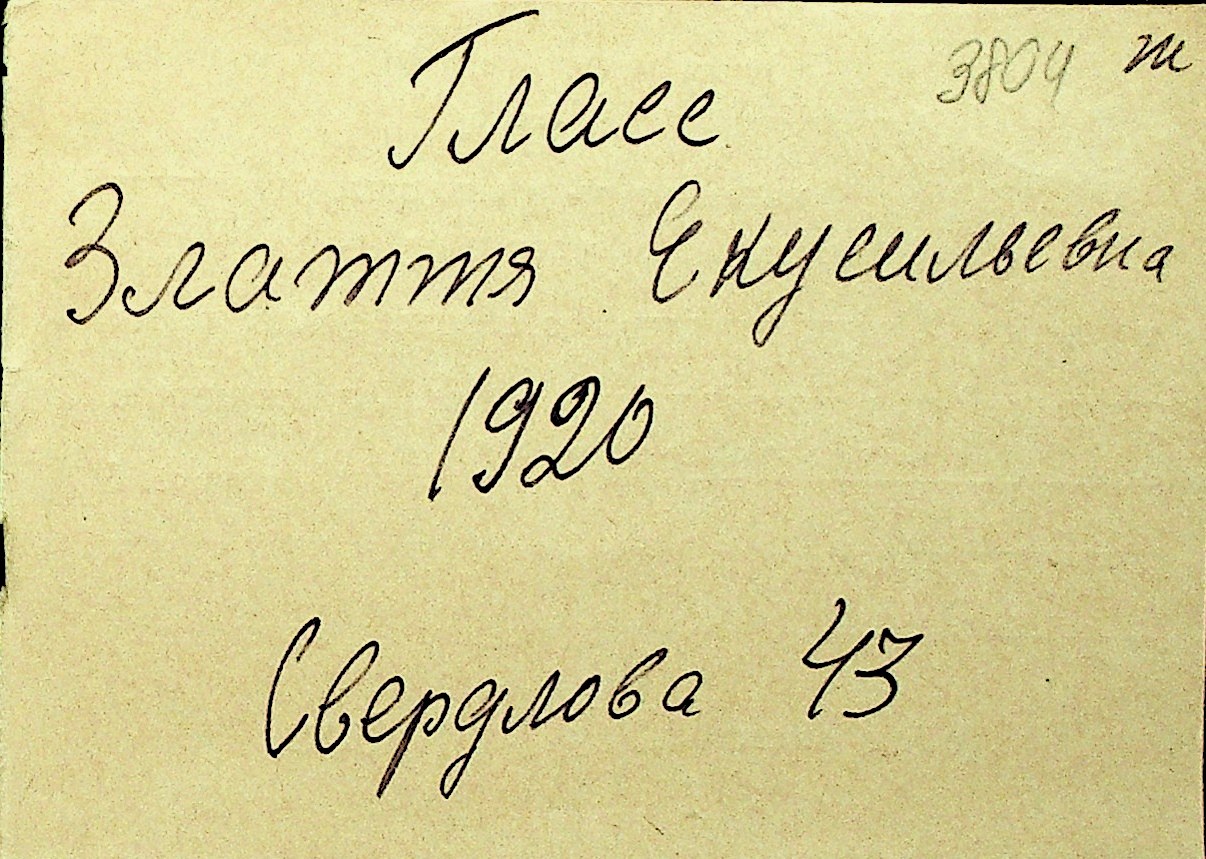 3804 ж
Гласс
Злаття Екусильевна
1920
Свердлова 43